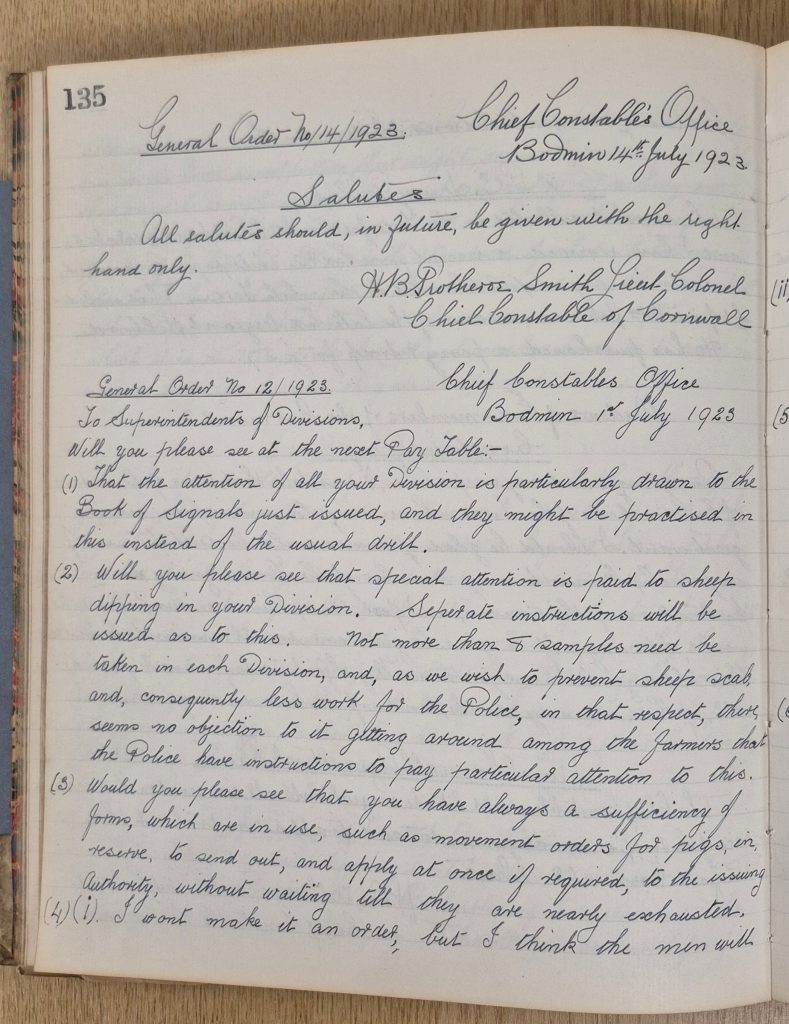 135
General Order No/14/1923.
Chief Constable's Office
Bodmin 14th July 1923.
Salutes
All salutes should, in future, be given with the right
hand only.
H.B Protheroe Smith Lieut Colonel
Chief Constable of Cornwall
General Order No 12/1923.
Chief Constables Office
Bodmin 1st July 1923
To Superintendents of Divisions,
Will you please see at the next Pay Table:-
(1) That the attention of all your Division is particularly drawn to the
Book of Signals just issued, and they might be practised in
this instead of the usual drill.
(2) Will you please see that special attention is paid to sheep
dipping in your Division. Seperate instructions will be
issued as to this. Not more than 8 samples need be
taken in each Division, and, as we wish to prevent sheep scab,
and, consequently less work for the Police, in that respect, there
seems no objection to it getting around among the farmers that
the Police have instructions to pay particular attention to this.
(3) Would you please see that you have always a sufficiency of
forms, which are in use, such as movement orders for pigs, in
reserve, to send out, and apply at once if required, to the issuing
Authority, without waiting till they are nearly exhausted.
(4) (i). I wont make it an order, but I think the men will
(ii)
(5